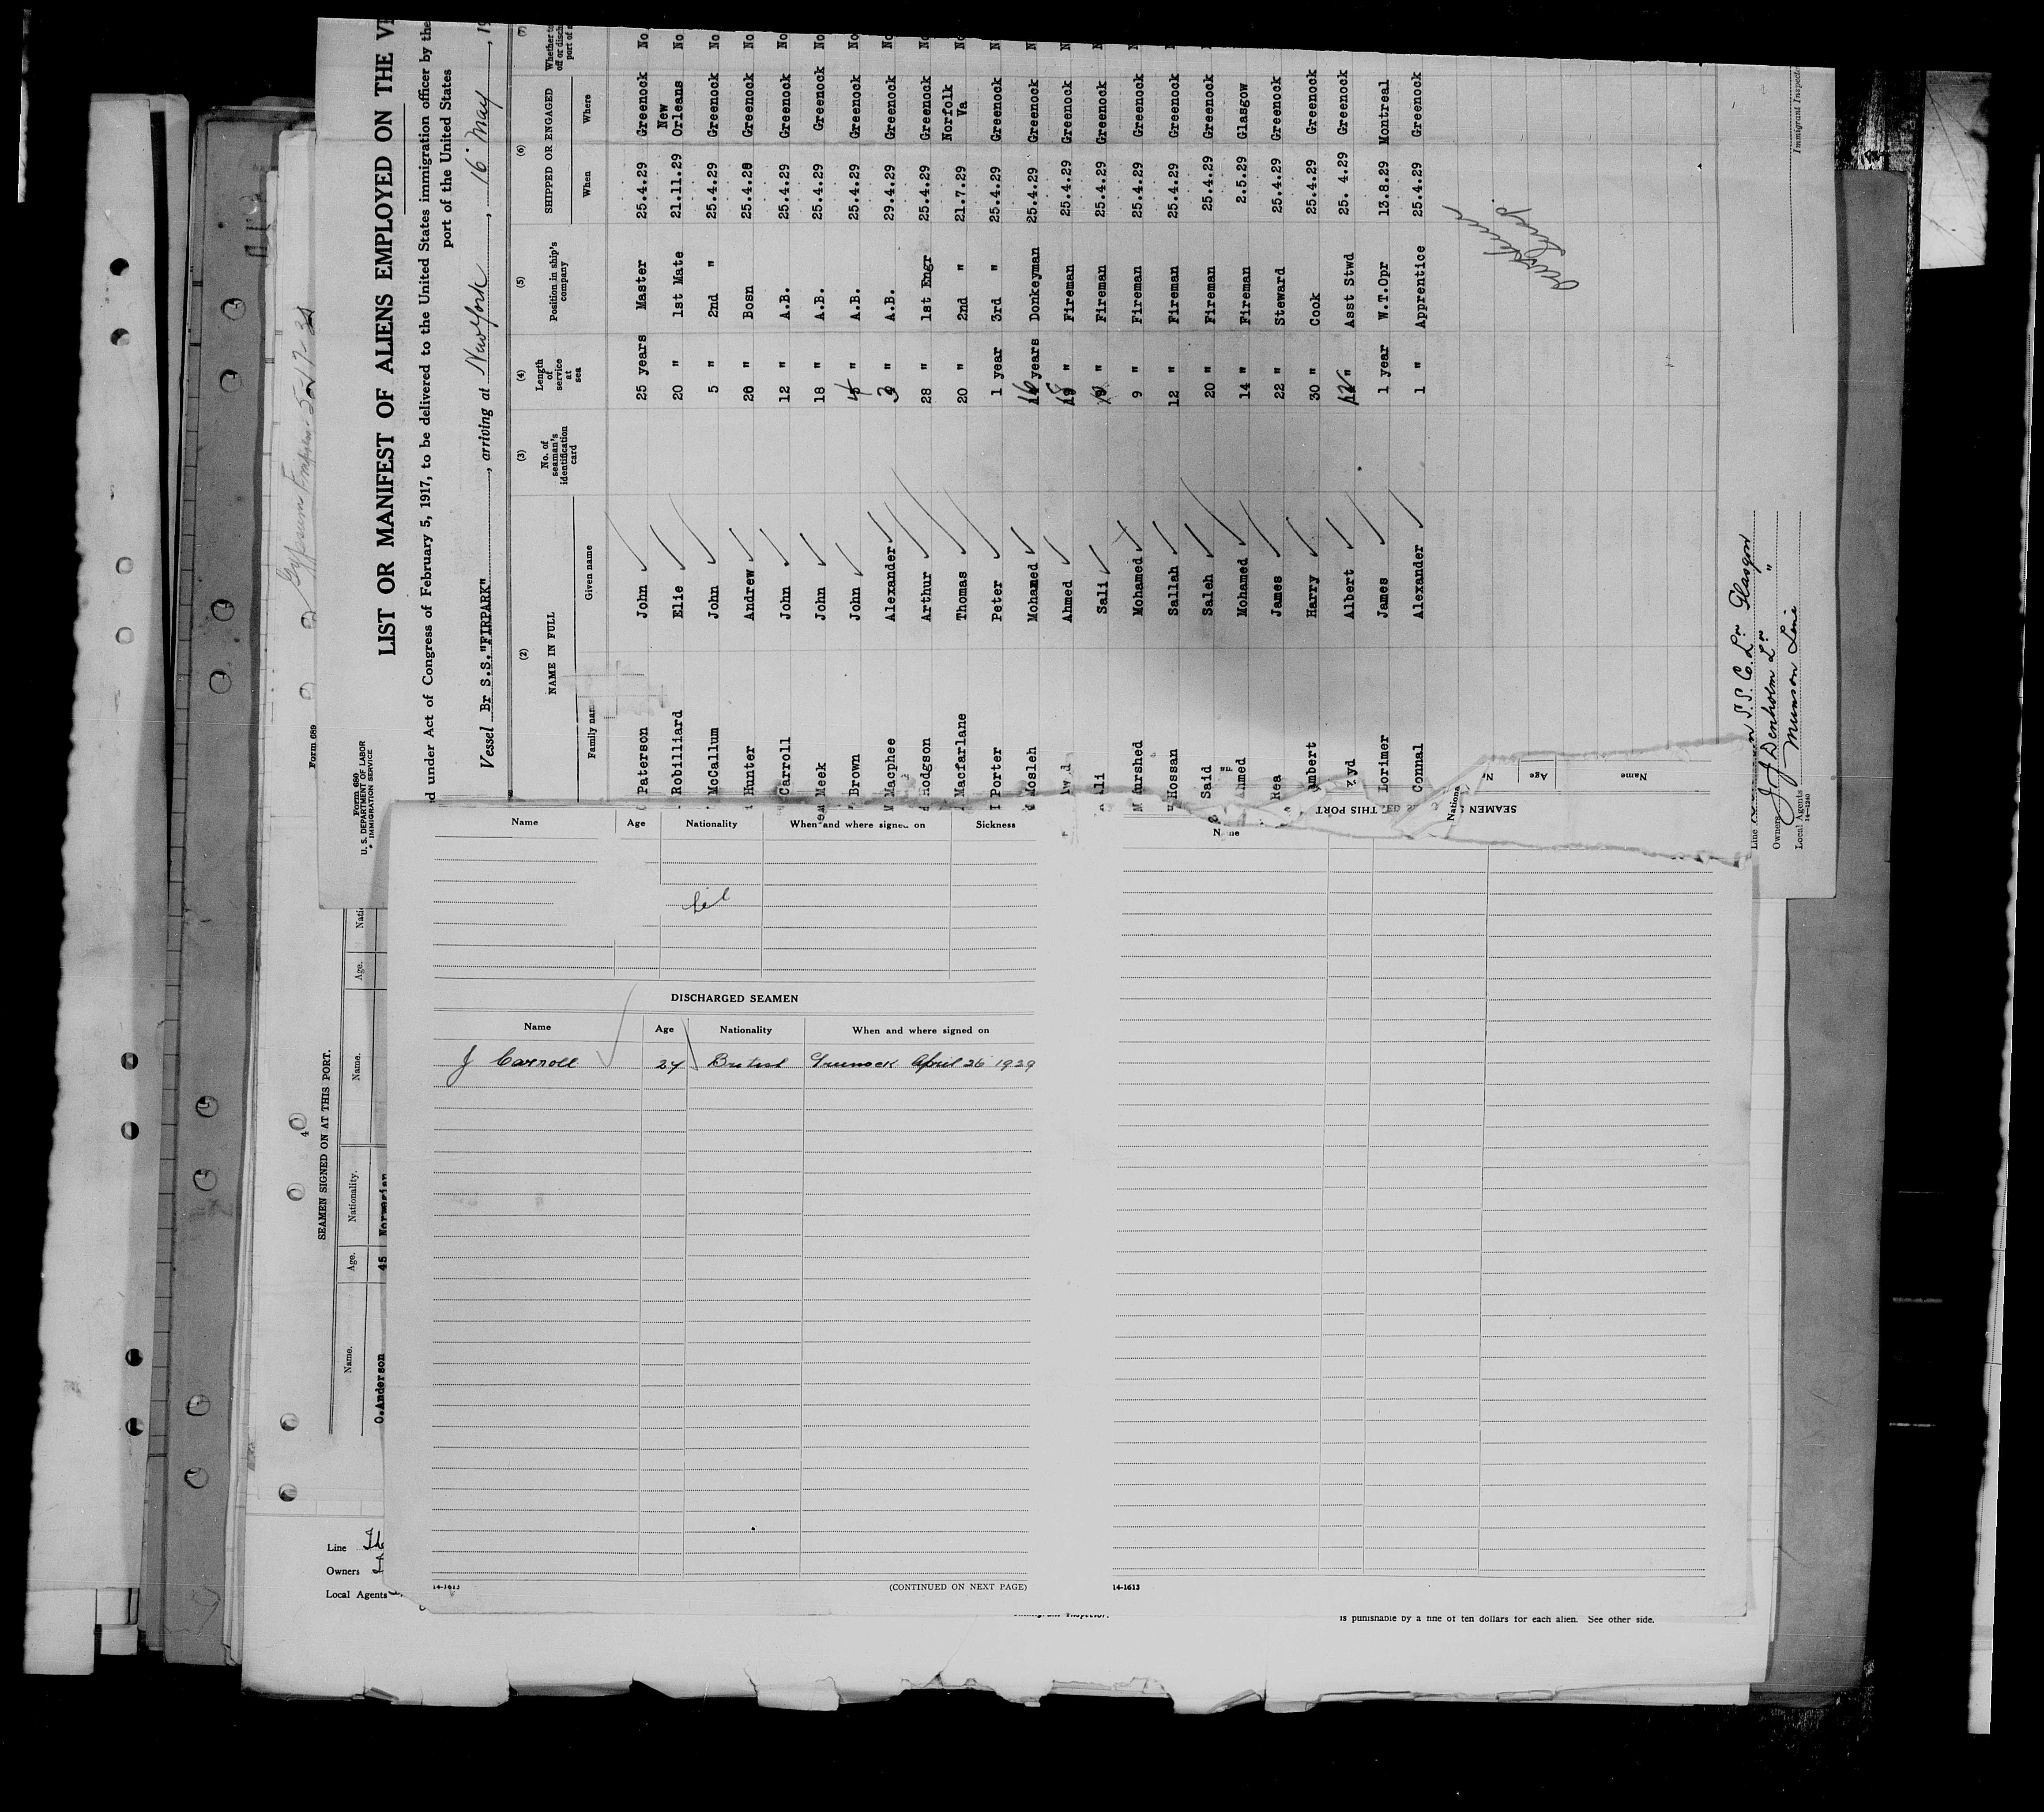 LIST OR MANIFEST OF ALIENS EMPLOYED ON THE
under Act of Congress of February 5, 1917, to be delivered to the United States immigration officer by the
port of the United States
Vessel Br S.S."FIRPARK", arriving at New York, 16 May, 19
(2) (3) (4) (5) (6) (7)
NAME IN FULL No. of seaman's identification card Length of service at sea Position in ship's company SHIPPED OR ENGAGED
Given name When Where
Paterson John 25 years Master 25.4.29 Greenock No
Robilliard Elie 20 " 1st Mate 21.11.29 New Orleans No
McCallum John 5 " 2nd " 25.4.29 Greenock No
Hunter Andrew 26 " Bosn 25.4.29 Greenock No
Carroll John 12 " A.B. 25.4.29 Greenock No
Meek John 18 " A.B. 25.4.29 Greenock No
Brown John 4 " A.B. 25.4.29 Greenock No
Macphee Alexander 3 " A.B. 29.4.29 Greenock No
Hodgson Arthur 28 " 1st Engr 25.4.29 Greenock No
Macfarlane Thomas 20 " 2nd " 21.7.29 Norfolk Va No
Porter Peter 1 year 3rd " 25.4.29 Greenock
Mosleh Mohamed 16 years Donkeyman 25.4.29 Greenock
Ahmed " Fireman 25.4.29 Greenock
Ali Sali " Fireman 25.4.29 Greenock
Murshed Mohamed 9 " Fireman 25.4.29 Greenock
Hossan Sallah 12 " Fireman 25.4.29 Greenock
Said Saleh 20 " Fireman 25.4.29 Greenock
Ahmed Mohamed 14 " Fireman 2.5.29 Glasgow
Rea James 22 " Steward 25.4.29 Greenock
Harry 30 " Cook 25.4.29 Greenock
Albert " Asst Stwd 25. 4.29 Greenock
Lorimer James 1 year W.T.Opr 13.8.29 Montreal
Connal Alexander 1 " Apprentice 25.4.29 Greenock
S.S. Co. Ltd Glasgow
Owners J J Denholm Ltd "
Local Agents Munson Line
14-1240
Immigrant Inspector
Form 689
Form 680
U. S. DEPARTMENT OF LABOR
IMMIGRATION SERVICE
SEAMEN SIGNED ON AT THIS PORT.
Name. Age. Nationality. Name. Age.
O.Anderson 45 Norwegian
Line
Owners
Local Agents
Name Age Nationality When and where signed on Sickness
DISCHARGED SEAMEN
Name Age Nationality When and where signed on
J Carroll 24 British Greenock April 26 1929
14-1613
(CONTINUED ON NEXT PAGE)
14-1613
SEAMEN
THIS PORT
Name Age
is punishable by a fine of ten dollars for each alien. See other side.